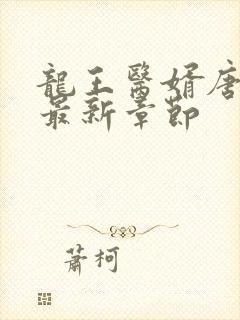 龍王醫婿唐
最新章節
蕭柯